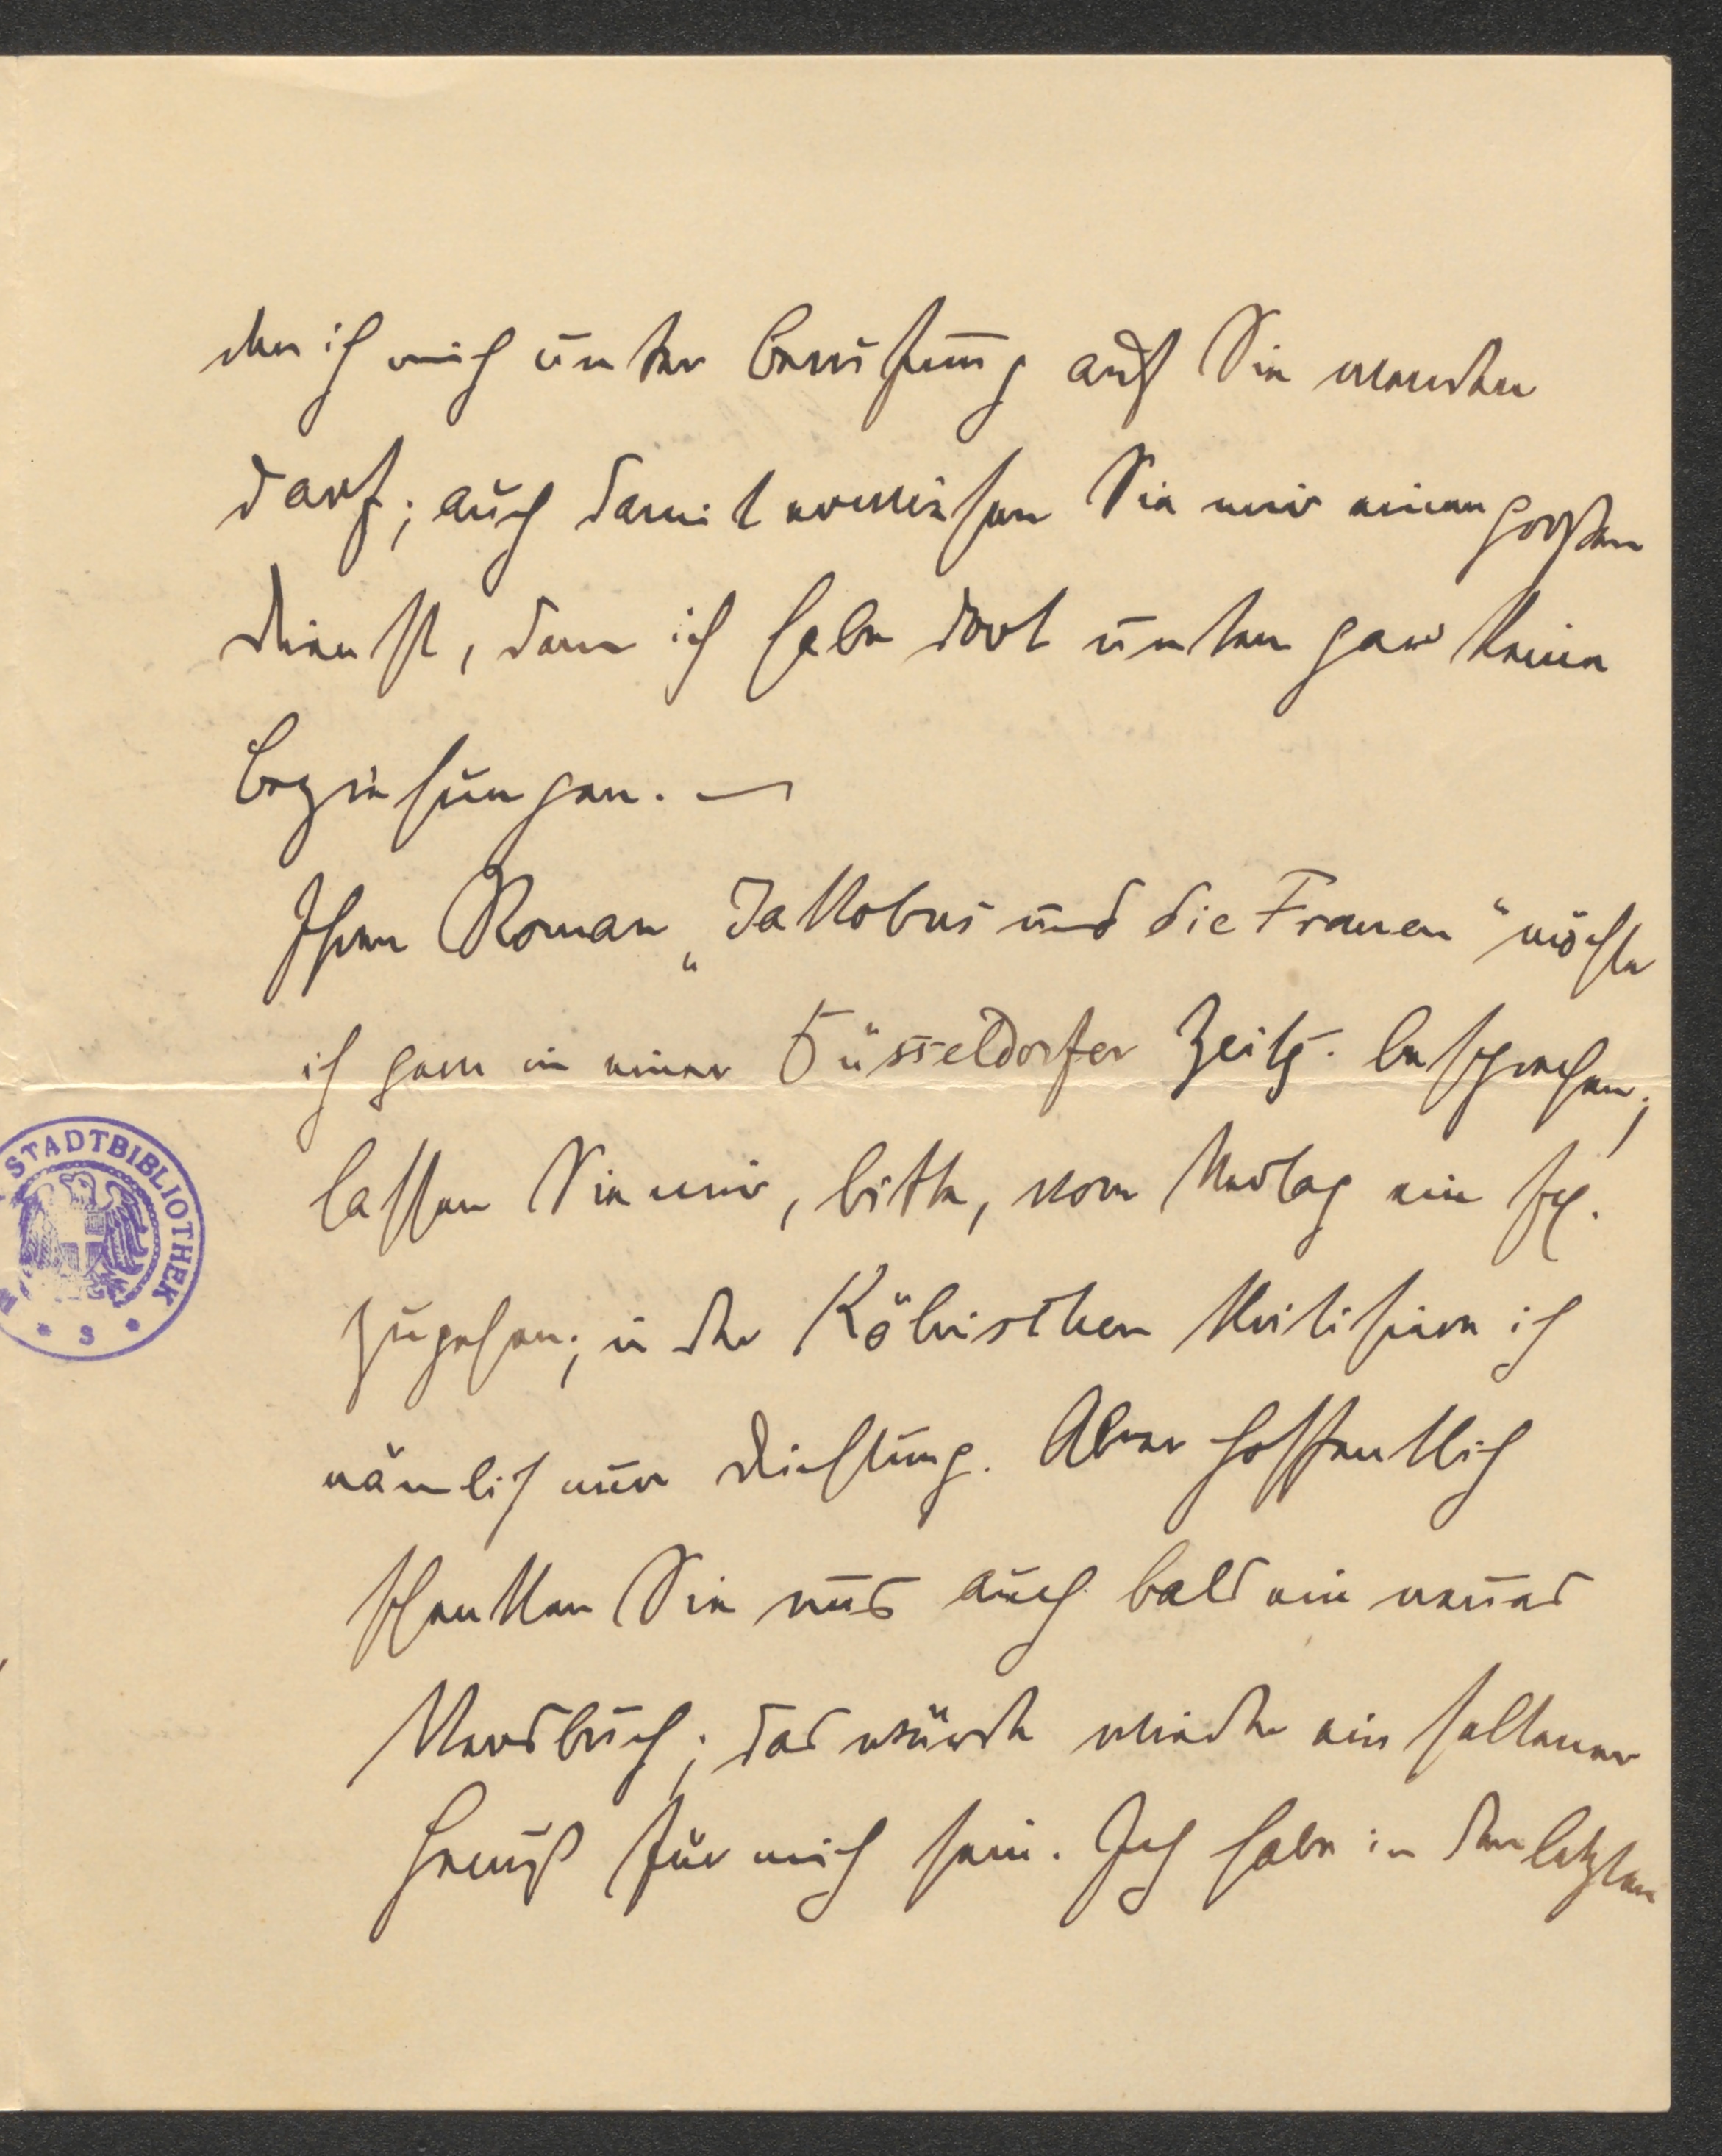 den ich mich unter Berufung auf Sie wenden
darf; auch damit erwiesen Sie mir einen großen
Dienst, denn ich habe dort unten gar keine
Beziehungen. —
Ihren Roman „Jakobus und die Frauen“ möchte
ich gern in einer Düsseldorfer Zeitg. besprechen;
lassen Sie mir, bitte, vom Verlag ein Ex.
zugehen; in der Kölnischen kritisiere ich
nämlich nur Dichtung. Aber hoffentlich
schenken Sie uns auch bald ein neues
Versbuch; das würde wieder ein seltener
Genuß für mich sein. Ich habe in den letzten
STADTBIBLIOTHEK
* S *